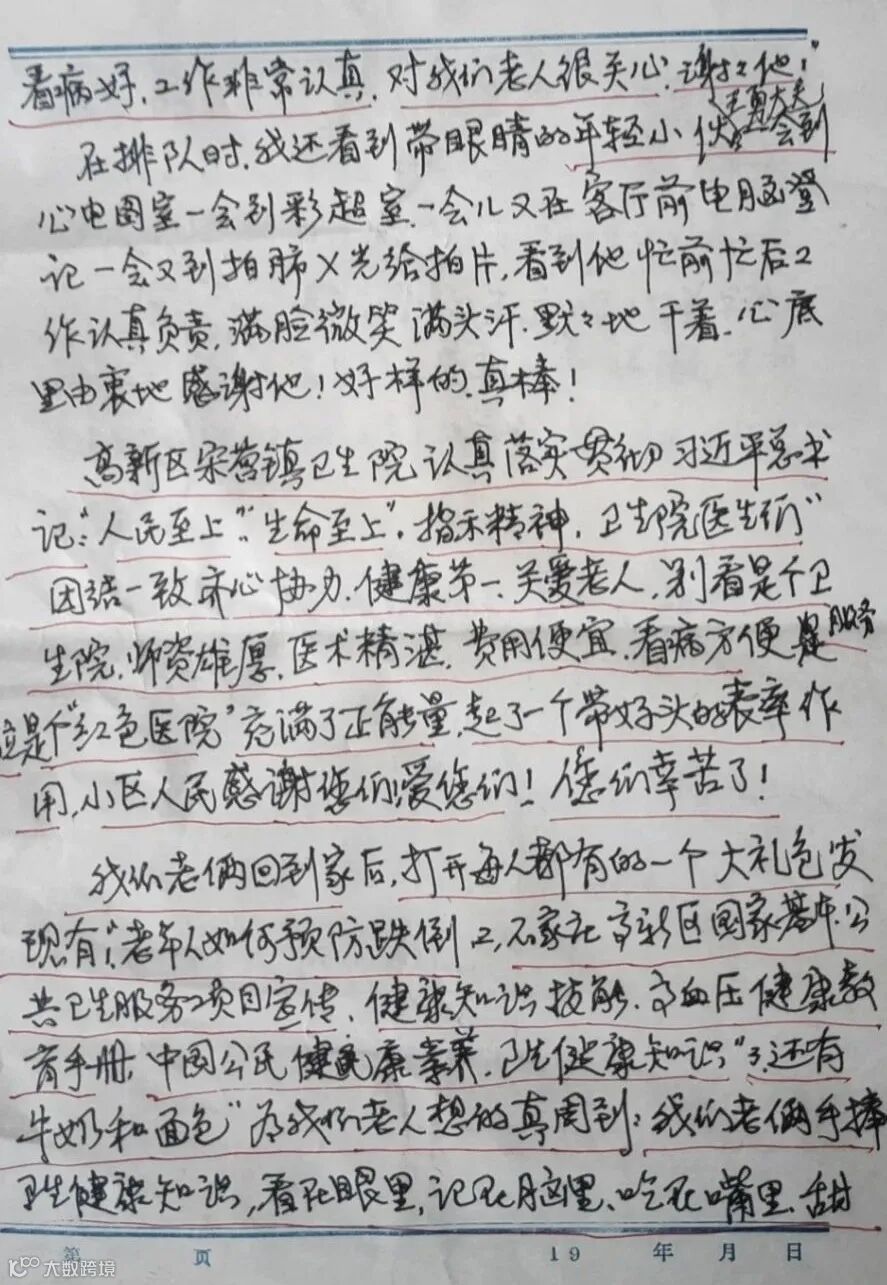 看病好，工作非常认真，对我们老人很关心，谢谢他！"
王勇大夫
在排队时，我还看到带眼睛的年轻小伙，一会到
心电图室一会到彩超室，一会儿又在客厅前电脑登
记一会又到拍肺X光给拍片，看到他忙前忙后工
作认真负责，满脸微笑满头汗，默々地干着，心底
里由衷地感谢他！好样的，真棒！
高新区宋营镇卫生院认真落实贯彻习近平总书
记："人民至上""生命至上"，指示精神，卫生院医生们"
团结一致齐心协力，健康第一，关爱老人，别看是个卫
生院，师资雄厚，医术精湛，费用便宜，看病方便，服务
是个"红色医院"充满了正能量，起了一个带好头的表率作
用，小区人民感谢您们爱您们！您们辛苦了！
我们老俩回到家后，打开每人都有的一个大礼包发
现有：1，"老年人如何预防跌倒，2，石家庄高新区国家基本公
共卫生服务项目宣传，健康知识技能，高血压健康教
育手册，中国公民健康素养，卫生健康知识"3，还有
牛奶和面包"为我们老人想的真周到；我们老俩手捧
卫生健康知识，看在眼里，记在脑里、吃在嘴里、甜
第 页 19 年 月 日
大数跨境